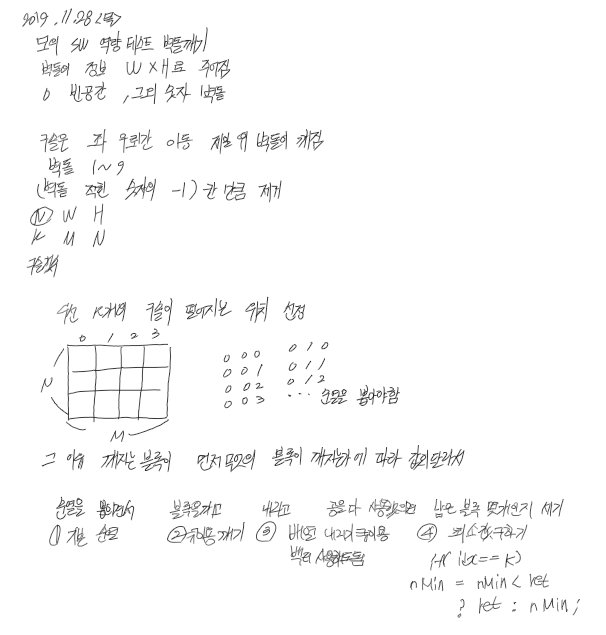 2019.11.28 (목)
모의 SW 역량 테스트 벽돌깨기
벽돌의 정보 W X H로 주어짐
0 빈공간, 그외 숫자 벽돌
구슬은 좌우로만 이동 제일 위 벽돌이 깨짐
벽돌 1~9
(벽돌 적힌 숫자의 -1)칸 만큼 제거
N W H
K M N
구슬횟수
우선 K개의 구슬이 떨어지는 위치 선정
0 1 2 3
N
M
0 0 0
0 0 1
0 0 2
0 0 3
0 1 0
0 1 1
0 1 2
... 순열을 뽑아야함
그 이유 깨지는 블록이 먼저 무엇의 블록이 깨지냐에 따라 값이 달라서
순열을 뽑으면서 블록을 깨고 내리고 공을 다 사용했으면 남은 블록 몇개인지 세기
① 기본 순열 ② 큐이용 깨기 ③ 배열 내리기 큐이용 ④ 최소값구하기
벡터 사용해도됨
if(idx==K)
nMin = nMin < ret
? ret : nMin;